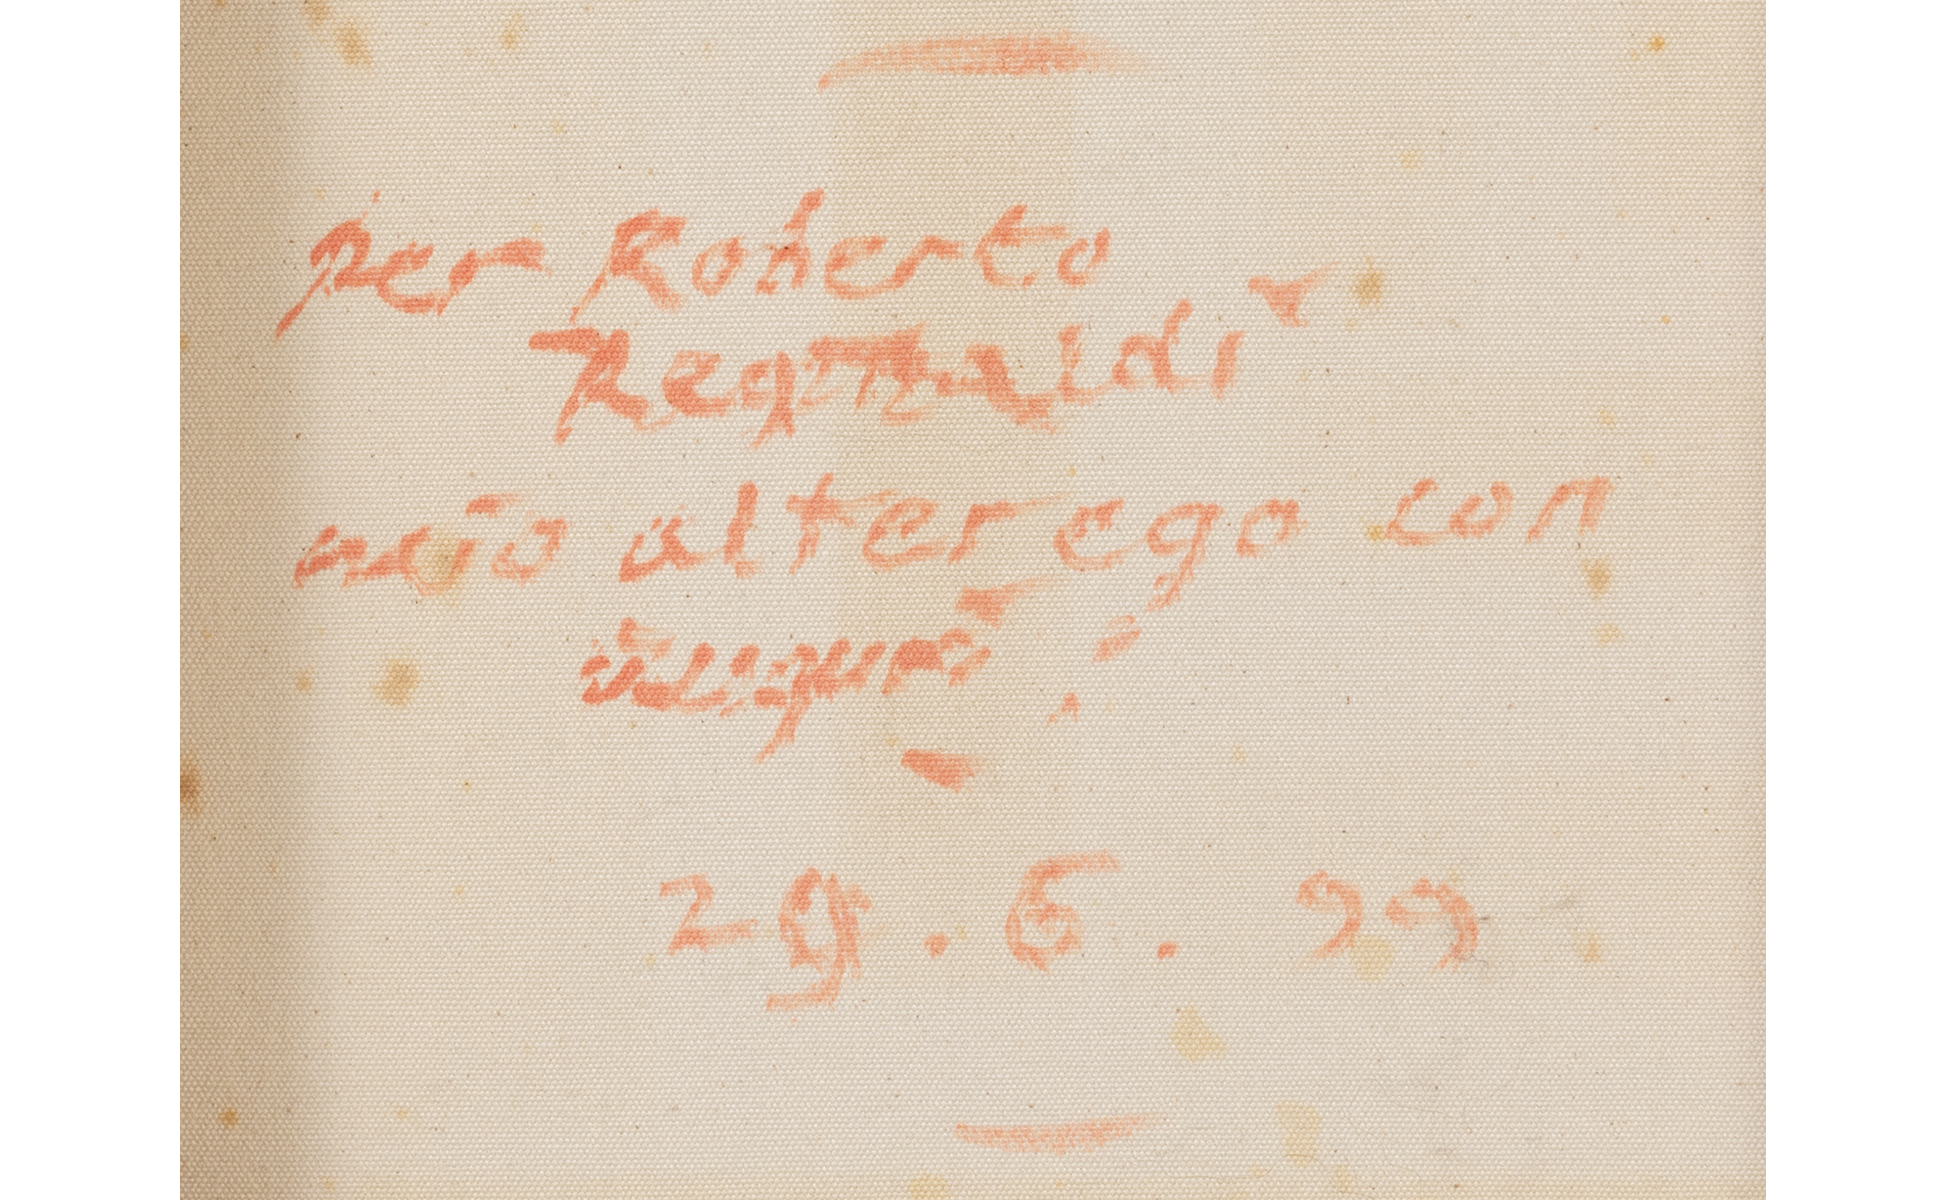 per Roberto
Reginaldi
mio alter ego con
29.6.99